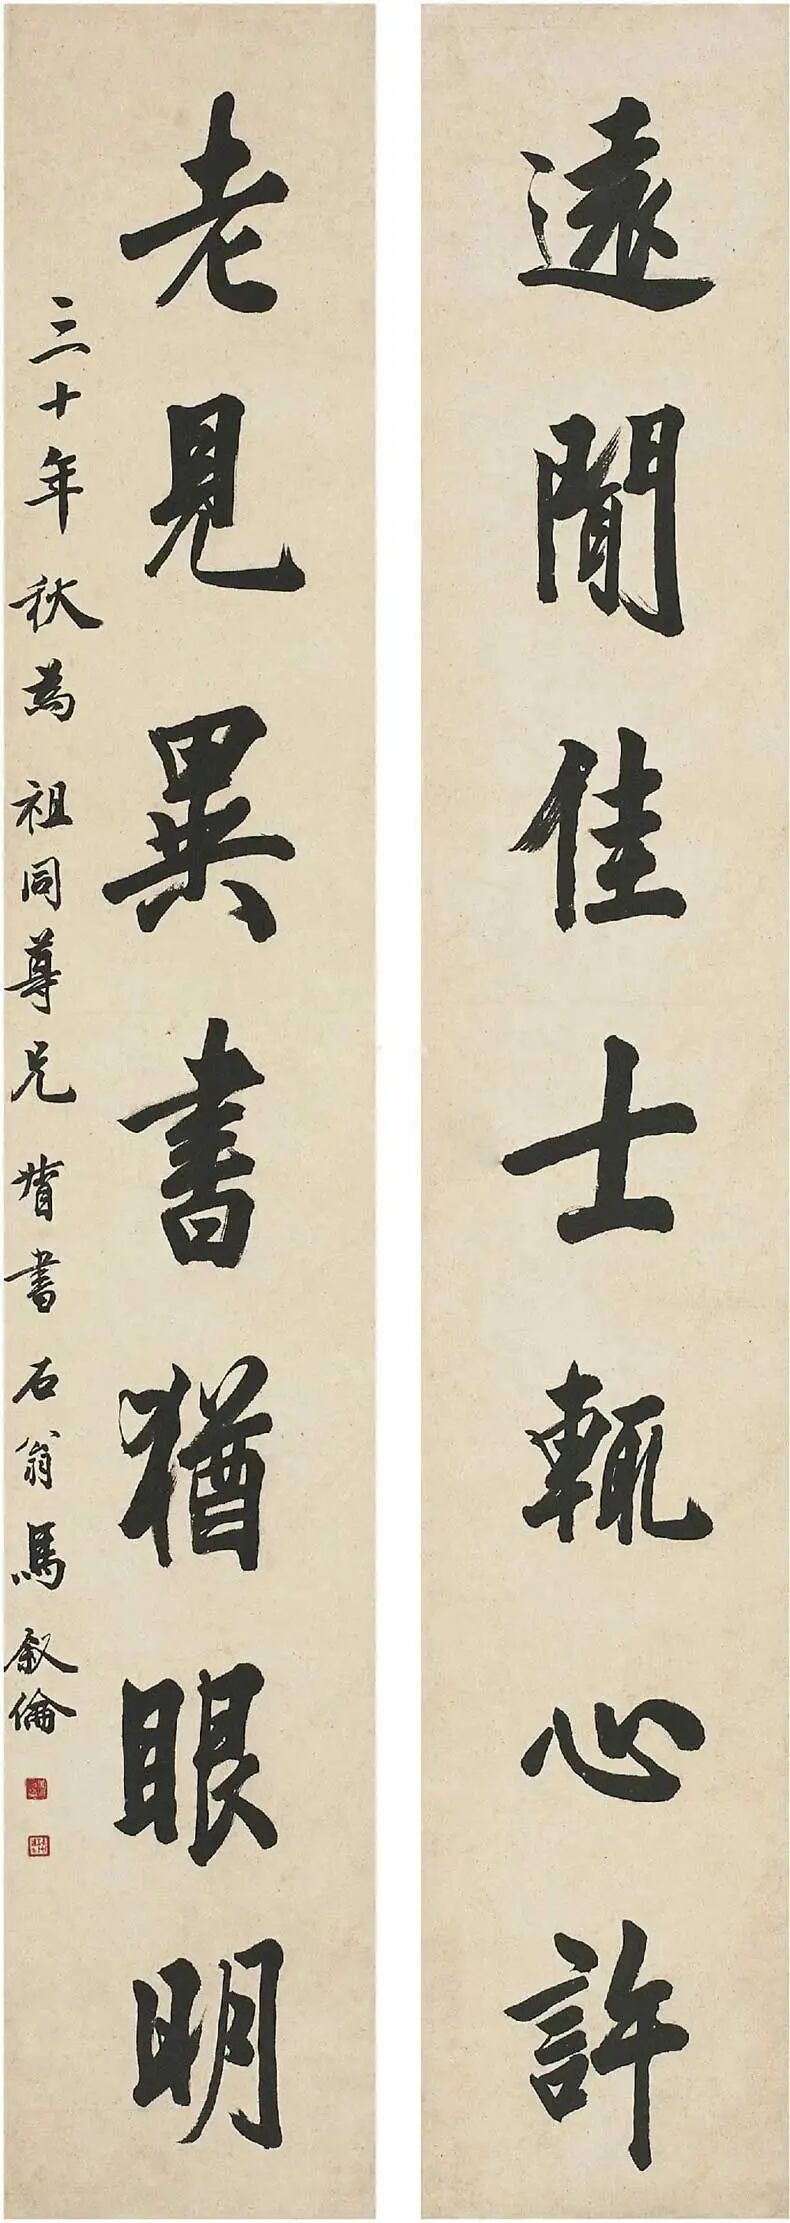 遠聞佳士輒心許
老見異書猶眼明
三十年秋為祖同尊兄書石翁馬叙倫